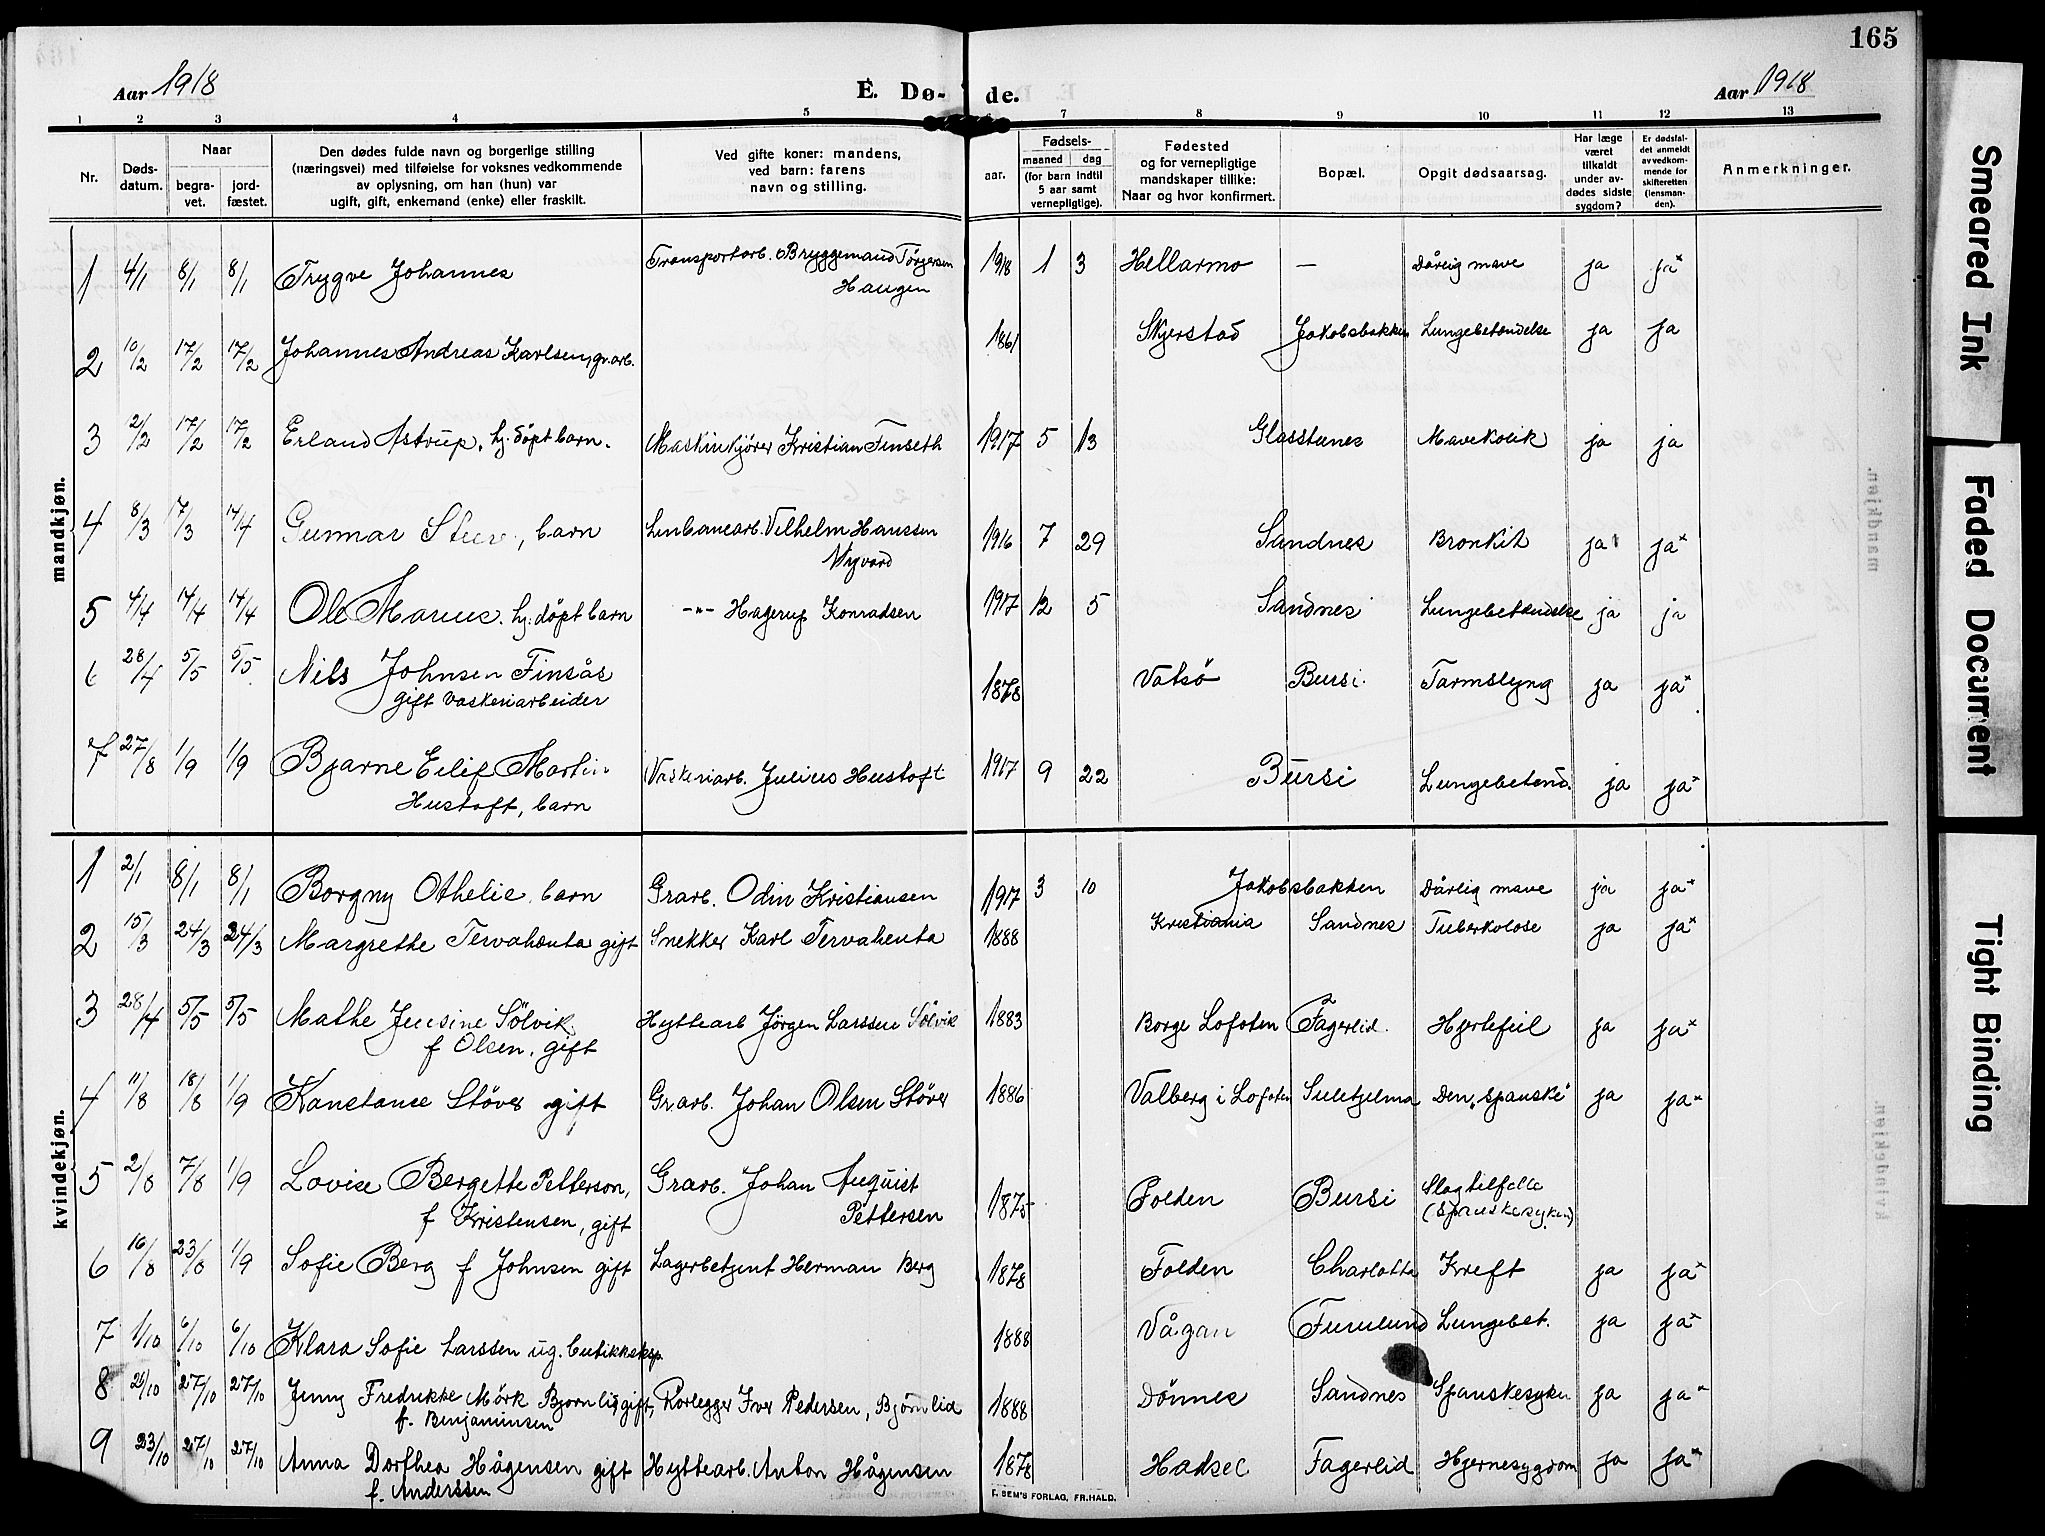 165
Aar 1918
E. Dø-
de.
Aar 1918
1 2 3 4 5 6 7 8 9 10 11 12 13
Nr.
Døds-
datum.
Naar
begra-
vet.
jord-
fæstet.
Den dødes fulde navn og borgerlige stilling
(næringsvei) med tilføielse for voksnes vedkommende
av oplysning, om han (hun) var
ugift, gift, enkemand (enke) eller fraskilt.
Ved gifte koner: mandens,
ved barn: farens
navn og stilling.
Fødsels-
aar.
maaned
dag
(for barn indtil
5 aar samt
vernepligtige).
Fødested
og for vernepligtige
mandskaper tillike:
Naar og hvor konfirmert.
Bopæl.
Opgit dødsaarsag.
Har læge
været
tilkaldt
under av-
dødes sidste
sygdom?
Er dødsfal-
det anmeldt
av vedkom-
mende for
skifteretten
(lensman-
den).
Anmerkninger.
mandkjøn.
1 4/1 8/1 8/1 Trygve Johannes Transportarb. Bryggemand Törgersen 1918 1 3 Hellarmo — Dårlig mave ja ja×
Haugen
2 10/2 17/2 17/2 Johannes Andreas Karlsen, gr.arb. 1861 Skjerstad Jakobsbakken Lungebetændelse ja ja
3 2/2 17/2 17/2 Erland Astrup, hj. döpt barn. Maskinkjörer Kristian Finseth 1917 5 13 Glasstunes Mavekolik ja ja
4 8/3 17/3 14/4 Gunnar, barn Linbanearb. Vilhelm Hanssen 1916 7 29 Sandnes Bronkit ja ja×
Nyvard
5 4/4 14/4 14/4 Ole Marius. hj. döpt barn -"- Hagerup Konradsen 1917 12 5 Sandnes Lungebetændelse ja ja
6 28/4 5/5 5/5 Nils Johnsen Finsås 1878 Vatsö Bursi. Tarmslyng ja ja×
gift vaskeriarbeider
7 27/8 1/9 1/9 Bjarne Eilif Martin Vaskeriarb. Julius Hustoft 1917 9 22 Bursi Lungebetend. ja ja×
Hustoft, barn
kvindekjøn.
1 2/1 8/1 8/1 Borgny Othelie, barn Grarb. Odin Kristiansen 1917 3 10 Jakobsbakken Dårlig mave ja ja×
2 15/3 24/3 24/3 Margrethe Tervahenta gift Snekker Karl Tervahenta 1888 Kristiania Sandnes Tuberkolose ja ja×
3 28/4 5/5 5/5 Mathe Jensine Sölvik Hyttearb Jörgen Larssen Sölvik 1883 Borge Lofoten Fagerlid. Hjertefeil ja ja×
f Olsen, gift
4 11/8 18/8 1/9 Konstanse Støver gift Grarb. Johan Olsen Støver 1886 Valberg i Lofoten Sulitjelma Den "spanske" ja ja×
5 2/8 7/8 1/9 Lovise Bergette Petterson, Grarb. Johan Auquist 1875 Folden Bursi Slagtilfelle
f Kristensen, gift Pettersen (Spanskesyken)
6 16/8 23/8 1/9 Sofie Berg f Johnsen gift Lagerbetjent Herman Berg 1878 Folden Charlotta Kreft ja ja×
7 1/10 6/10 6/10 Klara Sofie Larssen ug. butikkeksp. 1888 Vågan Furulund Lungebet. ja ja×
8 21/10 27/10 27/10 Jenny Fredrikke Mörk Bjørnlid, gift, Rörlegger Iver Pedersen, Bjørnlid 1888 Dönnes Sandnes Spanskesyken ja ja×
f. Benjaminsen
9 23/10 27/10 27/10 Anna Dorthea Hågensen gift Hyttearb. Anton Hågensen 1878 Hadsel Fagerlid Hjernesygdom ja ja×
f. Anderssen
F. BEM'S FORLAG, FR.HALD.
Smeared Ink
Faded Document
Tight Binding